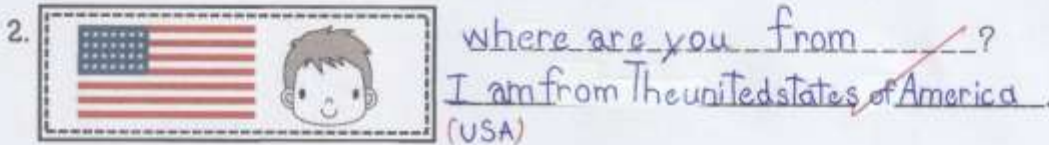 2. where are you from ?
I am from The united states of America.
(USA)